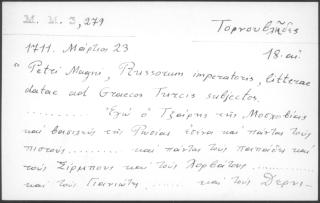 M. M. 3,279
Τορνουβλῆδες
1711. Μάρτιος 23
18. αἰ
"Petri Magni, Russorum imperatoris, litterae
datae ad Graecos Turcis subjectos.
......... Ἐγὼ ὁ Τζάρης τῆς Μοσχοβίας
καὶ βασιλεὺς τῆς Ρωσίας εἶναι καὶ πάντας τοὺς
πιστοὺς ......... καὶ πάντας τοὺς παπάδες καὶ
τοὺς Σέρμπους καὶ τοὺς Χορβάτους .........
καὶ τοὺς ......... καὶ τοὺς Δερνι-